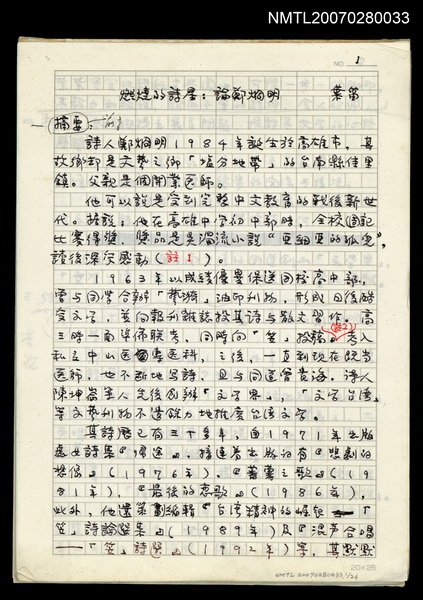 NMTL20070280033
NO. 1
燃燒的詩星:論鄭烱明 葉笛
一 摘要:前言
詩人鄭烱明1984年誕生於高雄市,其
故鄉卻是文藝之鄉「塩分地帶」的台南縣佳里
鎮。父親是個開業医師。
他可以說是受到完整中文教育的戰後新世
代。據說:他在高雄中学初中部時,全校週記
比賽得獎,獎品是
讀後深受感動(註1)。
1963年以成績優異保送同校高中部,
曾与同学合辦「
受文字,並向報刊雜誌投其詩与散文習作。高
三時一面準備聯考,同時向「笠」投稿(註2)。考入
私立中山医專医科,之後,一直到現在既当
医師,也不断地写詩,且与同道曾貴海、詩人
陳坤崙等人先後創辦「文学界」,「文学台湾」
等文藝刊物不遺餘力地推廣台湾文学。
其詩歷已有三十多年,自1971年出版
處女詩集『歸途』,接連著出版的有『悲劇的
想像』(1976年),『蕃薯之歌』(19
81年),『最後的戀歌』(1986年),
此外,他還策劃編輯『台湾精神的崛起—「
笠」詩論選集』(1989年)及『混声合唱
—「笠」詩選』(1992年)等,其
20×25
NMTL20070280033, 1/26